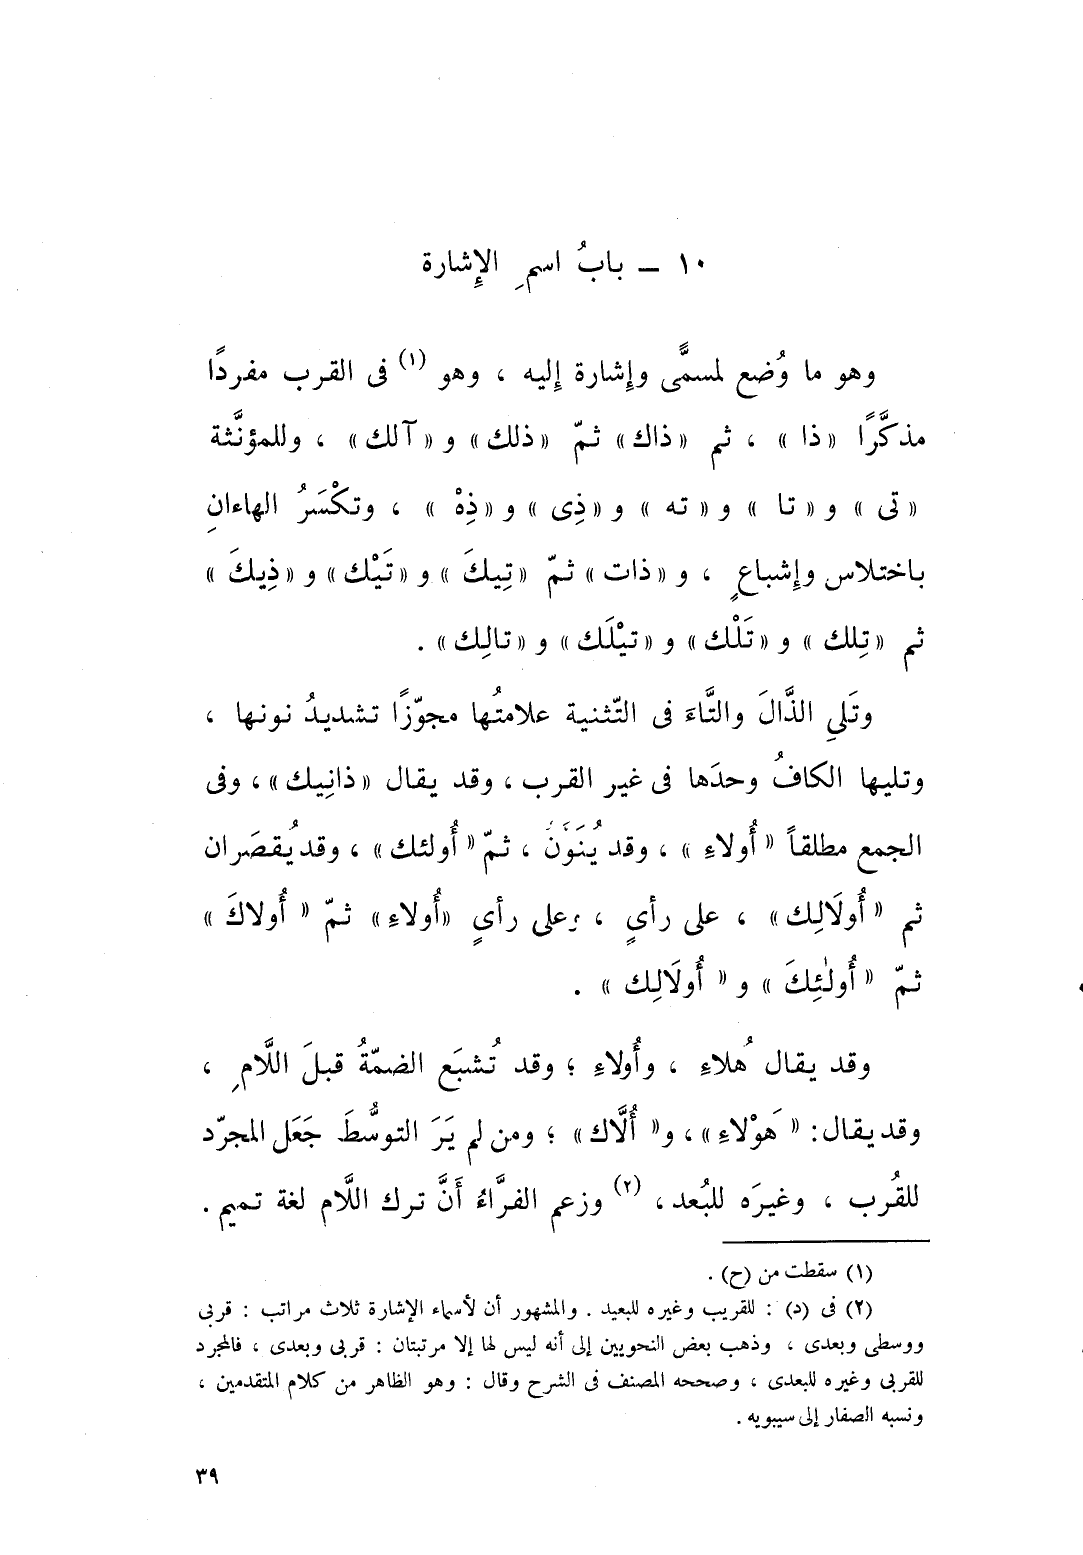 ١٠ ــ بابُ اسمِ الإِشارة
وهو ما وُضع لمسمًّى وإشارة إليه ، وهو (١) فى القرب مفردًا
مذكَّرًا « ذا » ، ثم « ذاك » ثمّ « ذلك » و « آلك » ، وللمؤنَّثة
« تى » و « تا » و « ته » و « ذِى » و « ذِهْ » ، وتكْسَرُ الهاءانِ
باختلاس وإشباعٍ ، و « ذات » ثمّ « تِيكَ » و « تَيْك » و « ذِيكَ »
ثم « تِلك » و « تَلْك » و « تيْلَك » و « تالِك » .
وتَلي الذَّالَ والتَّاءَ فى التّثنية علامتُها مجوّزًا تشديدُ نونها ،
وتليها الكافُ وحدَها فى غير القرب ، وقد يقال « ذانِيك » ، وفى
الجمع مطلقاً « أُولاءِ » ، وقد يُنَوَّن ، ثمّ « أُولئك » ، وقد يُقصَران
ثم « أُولَالِك » ، على رأيٍ ، وعلى رأيٍ « أُولاءِ » ثمّ « أُولاكَ »
ثمّ « أُولٰئِكَ » و « أُولَالِك » .
وقد يقال هُلاءِ ، وأُولاءِ ؛ وقد تُشبَع الضمّةُ قبلَ اللَّامِ ،
وقد يقال : « هَوْلاءِ » ، و « أُلَّاك » ؛ ومن لم يَرَ التوسُّطَ جَعَل المجرّد
للقُرب ، وغيرَه للبُعد ، (٢) وزعم الفرَّاءُ أَنَّ ترك اللَّام لغة تميم .
(١) سقطت من (ح) .
(٢) فى (د) : للقريب وغيره للبعيد . والمشهور أن لأسماء الإشارة ثلاث مراتب : قربى
ووسطى وبعدى ، وذهب بعض النحويين إلى أنه ليس لها إلا مرتبتان : قربى وبعدى ، فالمجرد
للقربى وغيره للبعدى ، وصححه المصنف فى الشرح وقال : وهو الظاهر من كلام المتقدمين ،
ونسبه الصفار إلى سيبويه .
٣٩